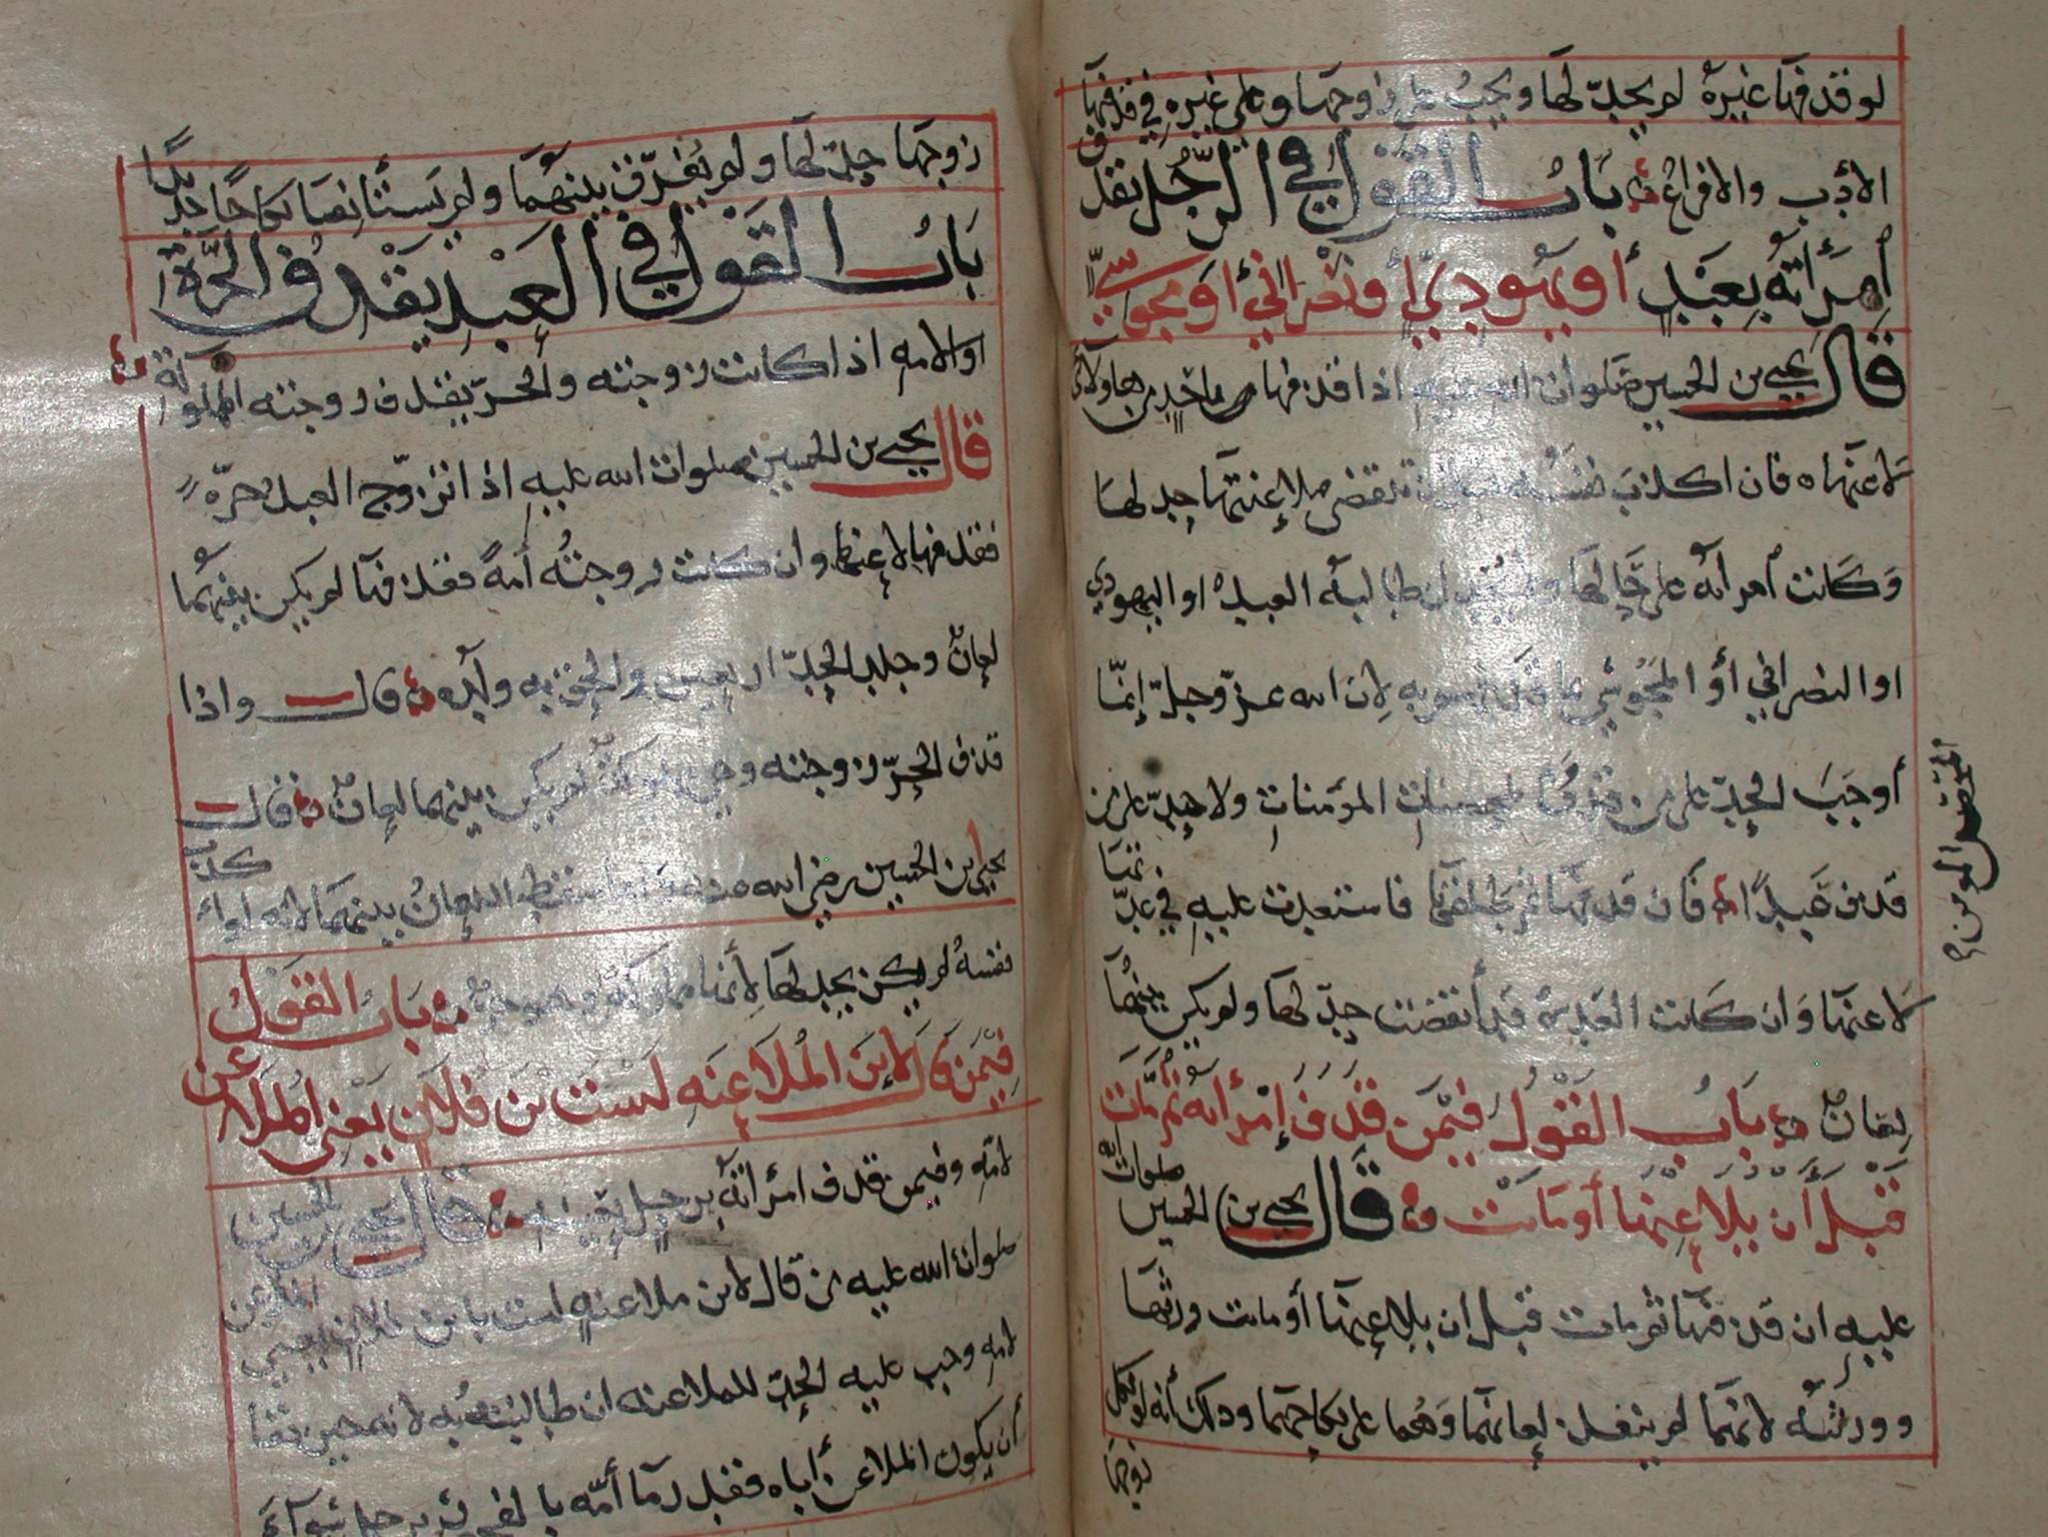 لو قذفها غيره لم يحد لها ويجب على زوجها وعلى غيره في قذفها
الأدب والافراغ باب القول في الرجل يقذف
أمرأته بعبد أو يهودي أو نصراني أو مجوسي
قال يحيى بن الحسين صلوات الله عليه اذا قذفها
لاعنها فان اكذب نفسه تنقضي ملاعنتها حد لها
وكانت أمرأته على حالها طالبه العبد او اليهودي
او النصراني أو المجوسي به لان الله عز وجل إنما
أوجب الحد على من قذف المحصنات المؤمنات ولا حد على من
قذف عبدا فان قذفها ثم طلقها فاستعدت عليه في عدتها
لاعنها وان كانت العدة قد أنقضت حد لها ولم يكن بينهما
لعان باب القول فيمن قذف إمرأته ثم مات
قبل أن يلاعنها أو ماتت قال يحيى بن الحسين صلوات الله
عليه ان قذفها ثم مات قبل ان يلاعنها أو ماتت ورثها
وورثته لانهما لم ينفذ لعانهما وهما على نكاحهما وذلك أنه لو نكل
زوجها
زوجها حد لها ولم يفرق بينهما ولم يستأنفا نكاحا جديدا
باب القول في العبد يقذف الحرة
او الامه اذا كانت زوجته والحر يقذف زوجته المملوكة
قال يحيى بن الحسين صلوات الله عليه اذا تزوج العبد حرة
فقذفها لاعنها وان كانت زوجته أمة فقذفها لم يكن بينهما
لعان وجلد الحد اربعين والحق به ولده قال واذا
قذف الحر زوجته وهي مملوكة لم يكن بينهما لعان قال
يحيى بن الحسين رضي الله عنه سقط اللعان بينهما لانه لو اكذب
نفسه لم يكن يحد لها لأنها مملوكة باب القول
فيمن قال لابن الملاعنه لست بن فلان يعني الملاعن
لامه وفيمن قذف امرأته برجل بعينه قال يحيى بن الحسين
صلوات الله عليه من قال لابن ملاعنه لست بابن فلان يعني الملاعن
لامه وجب عليه الحد للملاعنه ان طالبته به لانه حين نفا
أن يكون الملاعن أباه فقد رما أمه